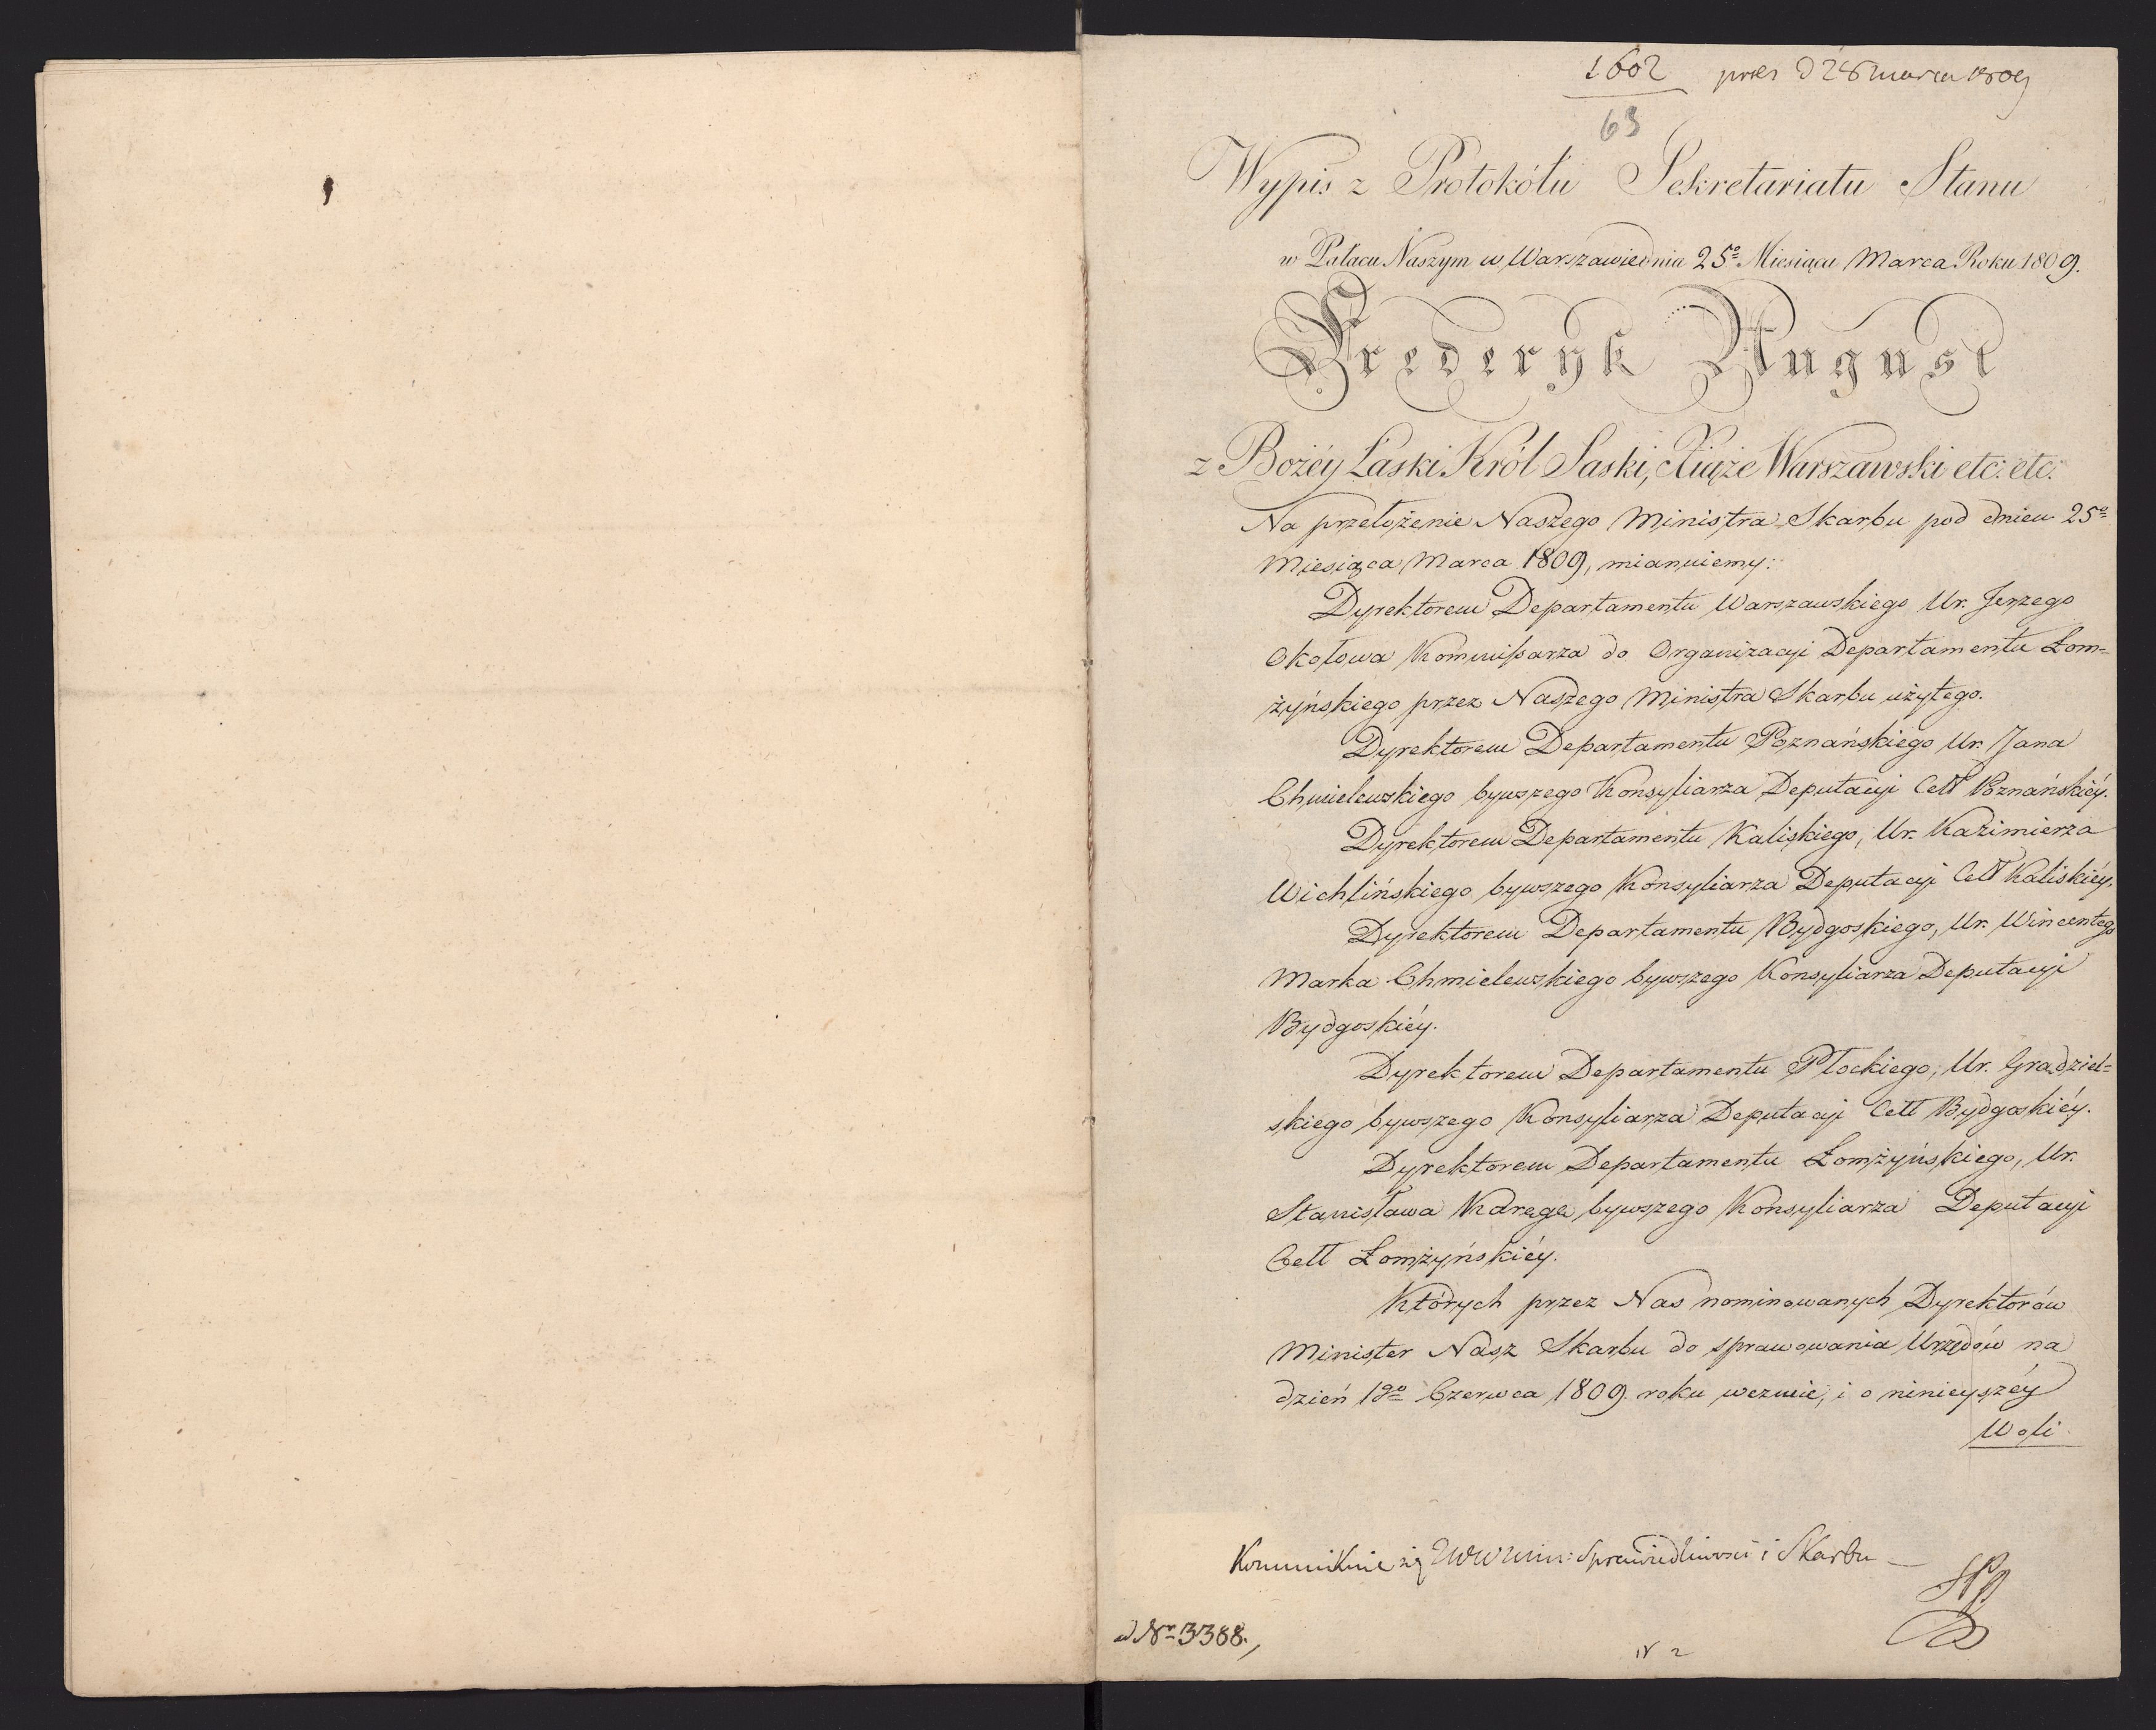 1602 pres d 26 marca 1809
63
Wypis z Protokółu Sekretariatu Stanu
w Pałacu Naszym w Warszawie dnia 25º Miesiąca Marca Roku 1809.
Frederyk August
z Bożéy Łaski Król Saski, Xiąże Warszawski etc: etc:
Na przełożenie Naszego Ministra Skarbu pod dniem 25º
Miesiąca Marca 1809, mianuiemy:
Dyrektorem Departamentu Warszawskiego Ur. Jerzego
Okołowa Kommissarza do Organizacyi Departamentu Łom=
żyńskiego przez Naszego Ministra Skarbu użytego.
Dyrektorem Departamentu Poznańskiego Ur. Jana
Chmielewskiego bywszego Konsyliarza Deputacyi Cell Poznańskiéy.
Dyrektorem Departamentu Kaliskiego, Ur. Kazimierza
Wichlińskiego bywszego Konsyliarza Deputacyi Cell Kaliskiéy.
Dyrektorem Departamentu Bydgoskiego, Ur. Wincentego
Marka Chmielewskiego bywszego Konsyliarza Deputacyi
Bydgoskiéy.
Dyrektorem Departamentu Płockiego, Ur. Grądziel=
skiego bywszego Konsyliarza Deputacyi Cell Bydgoskiéy.
Dyrektorem Departamentu Łomżyńskiego, Ur.
Stanisława bywszego Konsyliarza Deputacyi
Cell Łomżyńskiéy.
Których przez Nas nominowanych Dyrektorów
Minister Nasz Skarbu do sprawowania Urzędów na
dzień 1go Czerwca 1809 roku wezwie, i o ninieyszéy
Woli
Kommunikuie się Min: Sprawiedliwości i Skarbu —
ad Nro 3388.
N 2